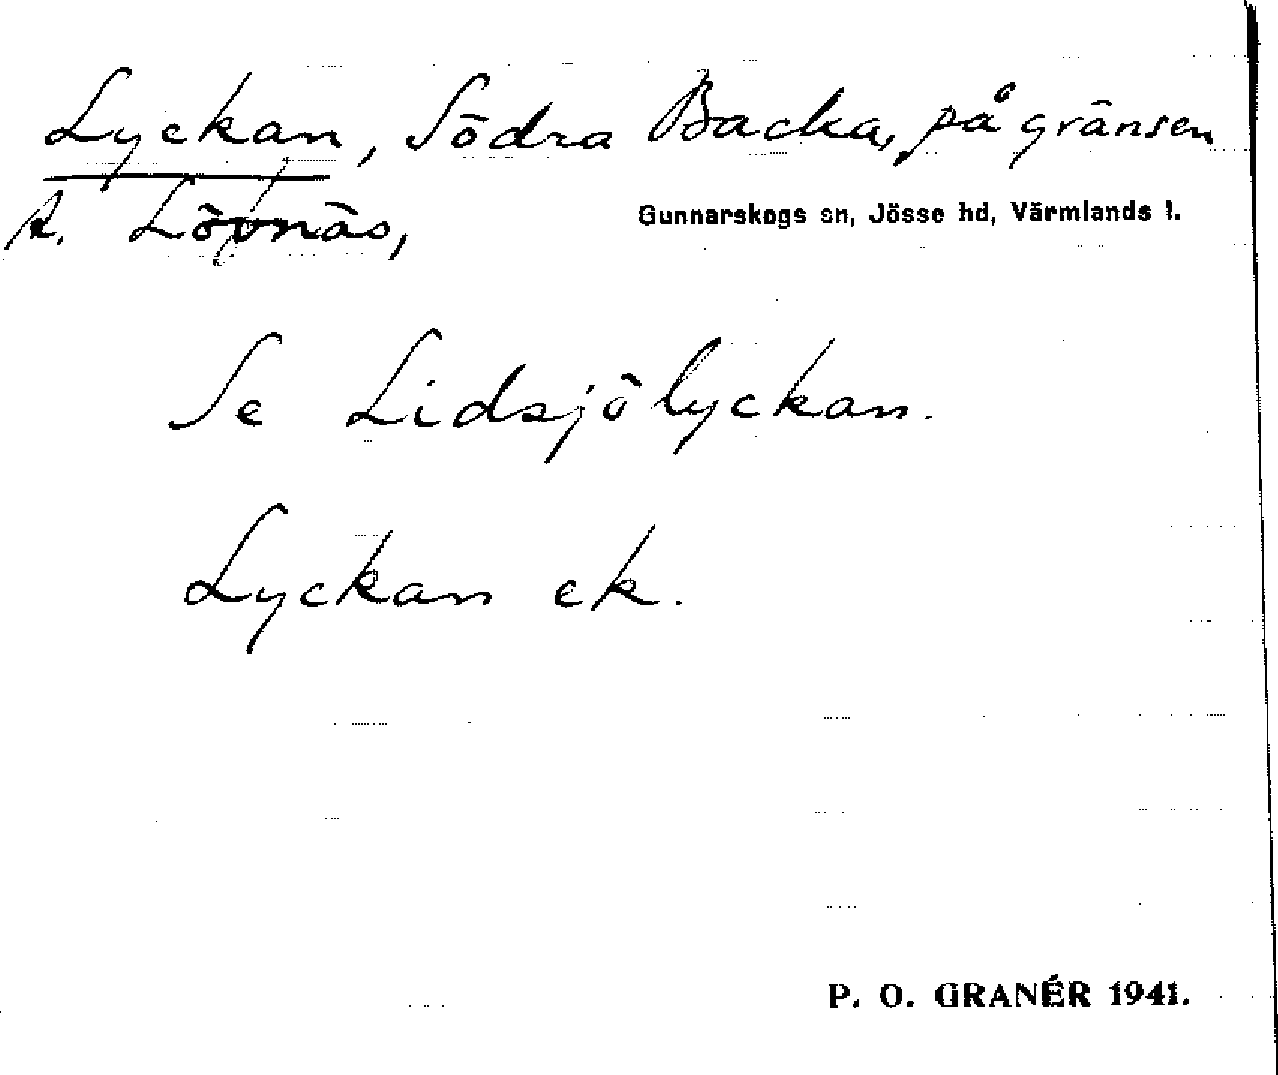 Lyckan, Södra Backa, på gränsen
t. Lövnäs,
Gunnarskogs sn, Jösse hd, Värmlands l.
Se Lidsjölyckan.
Lyckan ek.
P. O. GRANÉR 1941.